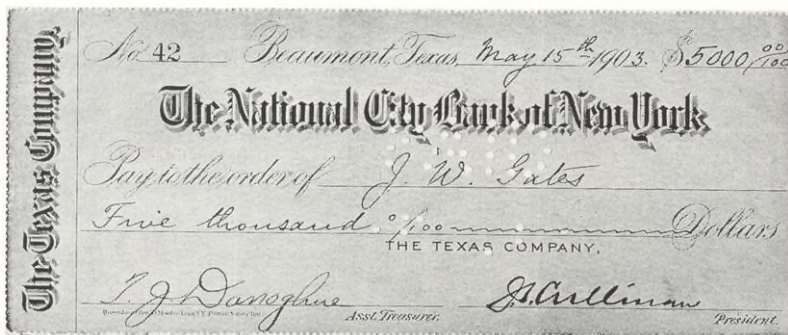 The Texas Company
No. 42 Beaumont, Texas, May 15th 1903. $5000 00/100
The National City Bank of New York
Pay to the order of J. W. Gates
Five thousand 0/100 Dollars
THE TEXAS COMPANY,
T. J. Donoghue J. S. Cullinan
Asst. Treasurer. President.